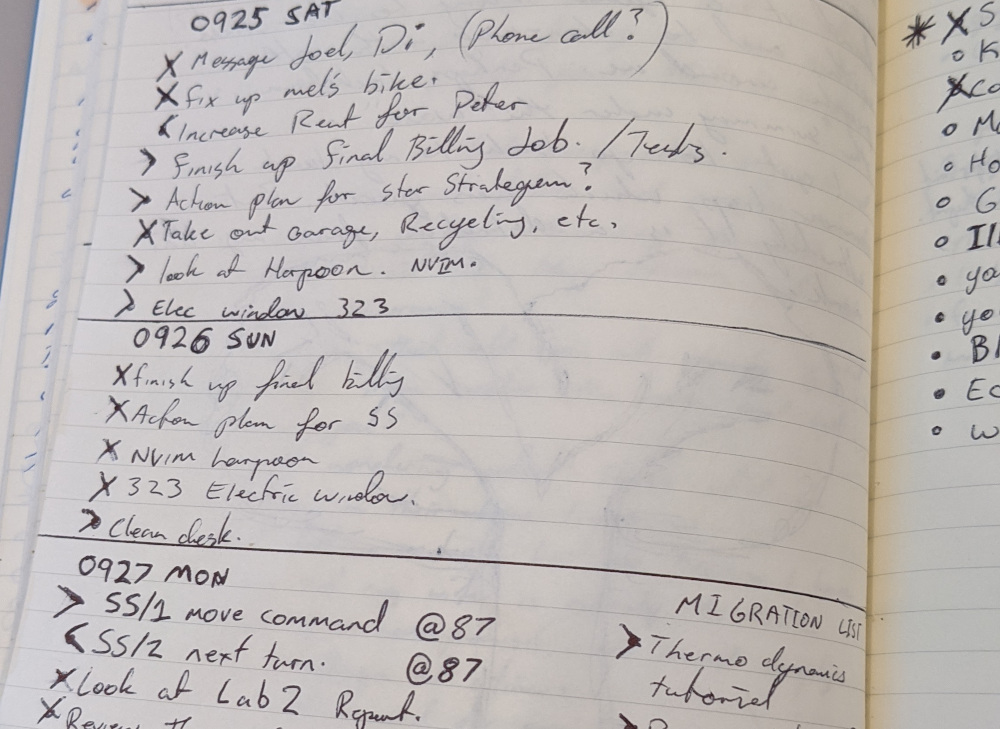 0925 SAT
X Message Joel, Di, (Phone call?)
X fix up mel's bike.
< Increase Rent for Peter
> finish up final Billing Job. /
> Action plan for star Strategem?
X Take out Garage, Recycling, etc.
> look at Harpoon. NVIM.
> Elec window 323
0926 SUN
X finish up final billing
X Action plan for SS
X NVim harpoon
X 323 Electric window.
> Clean desk.
0927 MON
> SS/1 move command @87
< SS/2 next turn. @87
X Look at Lab 2 Report.
X Review
MIGRATION LIST
> Thermodynamics
tutorial
>
* X S
o K
X Co
o M
o Ho
o G
o Ill
• yo
• yo
• Bl
• Ec
o w